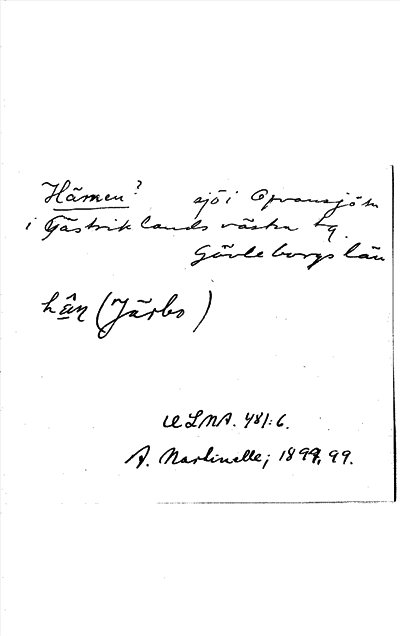 Hämen? sjö i Ofvansjö sn
i Gästriklands västra tg.
Gävleborgs län
hân (Järbo)
ULMA. 481:6.
A. Martinelle; 1898, 99.